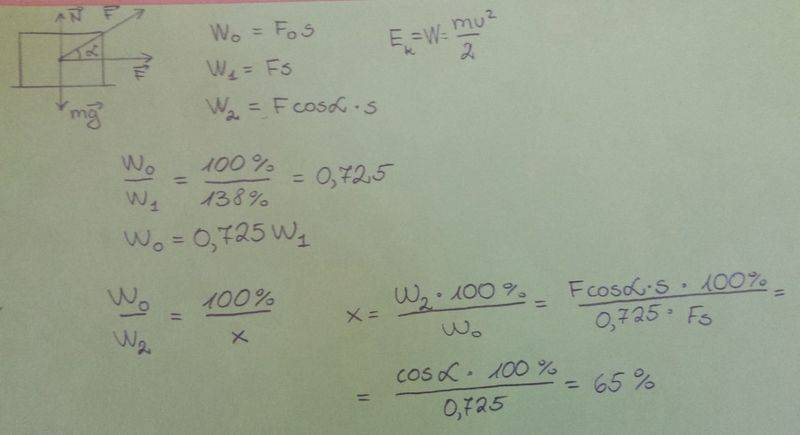 N⃗ F⃗
α
F⃗
mg⃗
W₀ = F₀s
W₁ = Fs
W₂ = Fcosα · s
Eₖ=W=mv²/2
W₀/W₁ = 100%/138% = 0,725
W₀ = 0,725W₁
W₀/W₂ = 100%/x
x = W₂ · 100%/W₀ = Fcosα·s · 100%/0,725 · Fs =
= cosα · 100%/0,725 = 65%